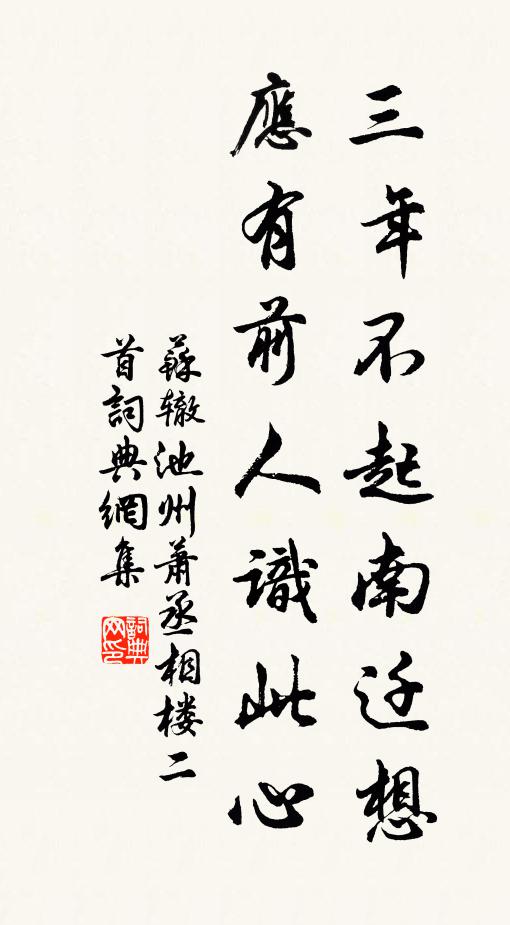 三年不起南迁想
應有前人識此心
蘇辙池州蕭丞相楼二
首詞典網集
詞典网印